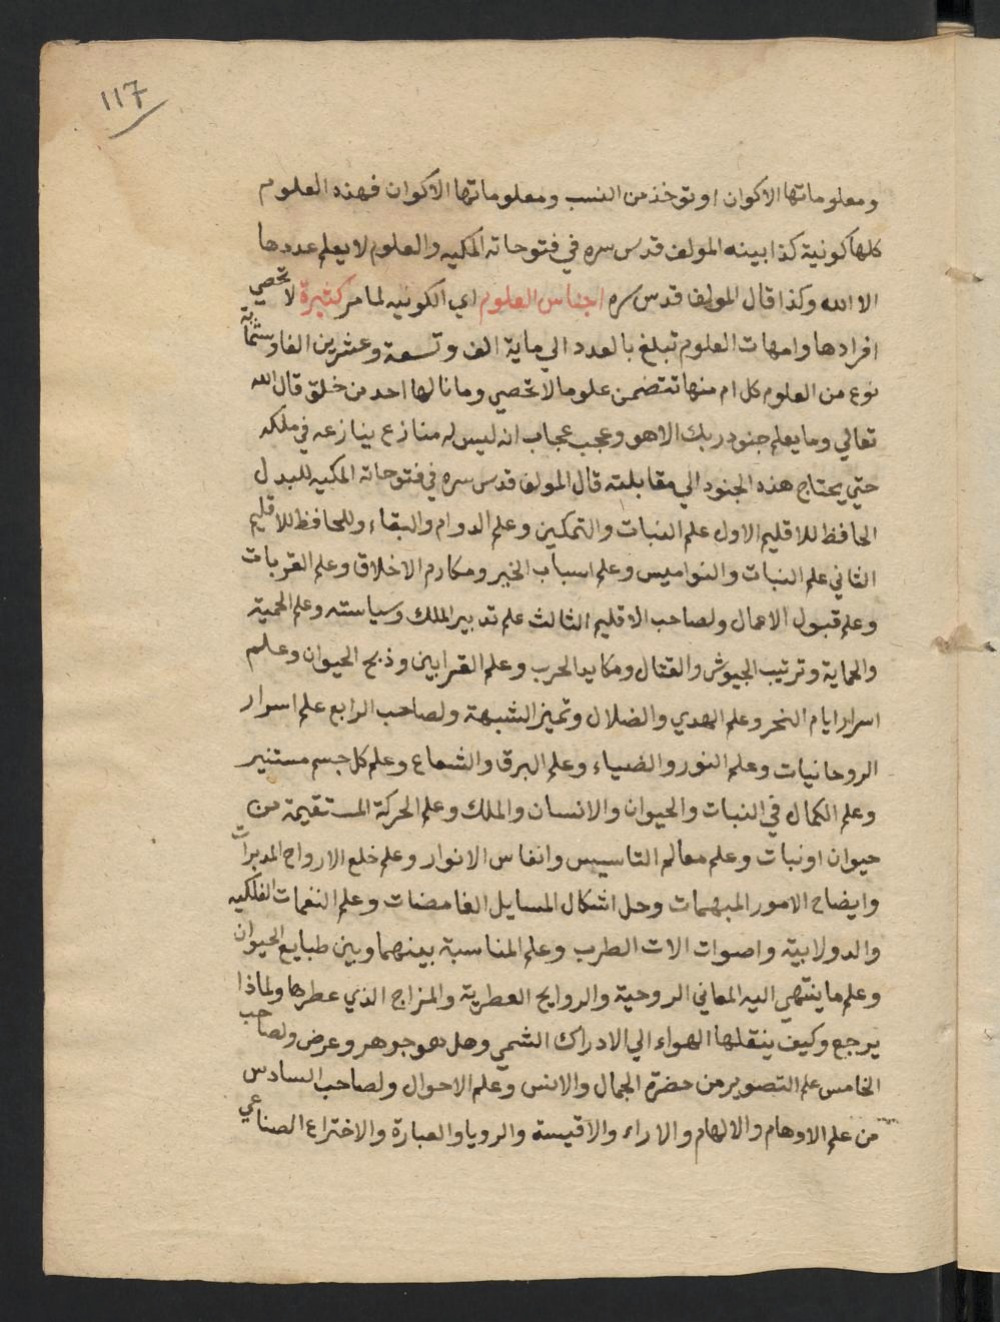 ١١٧
ومعلوماتها الاكوان او توخذ من النسب ومعلوماتها الاكوان فهذه العلوم
كلها كونية كذا بينه المولف قدس سره في فتوحاته المكيه والعلوم لا يعلم عددها
الا الله وكذا قال المولف قدس سره اجناس العلوم اي الكونيه لما مر كثيرة لا تحصي
افرادها وامهات العلوم تبلغ بالعدد الي ماية الف وتسعة وعشرين الفا وستماية
نوع من العلوم كل ام منها تتضمن علوما لا تحصي وما نالها احد من خلق قال الله
تعالي وما يعلم جنود ربك الا هو وعجب عجاب انه ليس له منازع ينازعه في ملكه
حتي يحتاج هذه الجنود الي مقابلته قال المولف قدس سره في فتوحاته المكيه للبدل
الحافظ للاقليم الاول علم النبات والتمكين وعلم الدوام والبقاء وللحافظ للاقليم
الثاني علم النبات والنواميس وعلم اسباب الخير ومكارم الاخلاق وعلم القربات
وعلم قبول الاعمال ولصاحب الاقليم الثالث علم تدبير الملك وسياسته وعلم الحمية
والحماية وترتيب الجيوش والقتال ومكايد الحرب وعلم القرابين وذبح الحيوان وعلم
اسرار ايام النحر وعلم الهدي والضلال وتميز الشبهة ولصاحب الرابع علم اسرار
الروحانيات وعلم النور والضياء وعلم البرق والشعاع وعلم كل جسم مستنير
وعلم الكمال في النبات والحيوان والانسان والملك وعلم الحركة المستقيمة من
حيوان او نبات وعلم معالم التاسيس وانفاس الانوار وعلم خلع الارواح المدبرات
وايضاح الامور المبهمات وحل اشكال المسايل الغامضات وعلم النغمات الفلكيه
والدولابية واصوات الات الطرب وعلم المناسبة بينهما وبين طبايع الحيوان
وعلم ما ينتهي اليه المعاني الروحية والروايح العطرية والمزاج الذي عطرها ولماذا
يرجع وكيف ينقلها الهواء الي الادراك الشمي وهل هو جوهر وعرض ولصاحب
الخامس علم التصوير من حضرة الجمال والانس وعلم الاحوال ولصاحب السادس
من علم الاوهام والالهام والاراء والاقيسة والرويا والعبارة والاختراع الصناعي